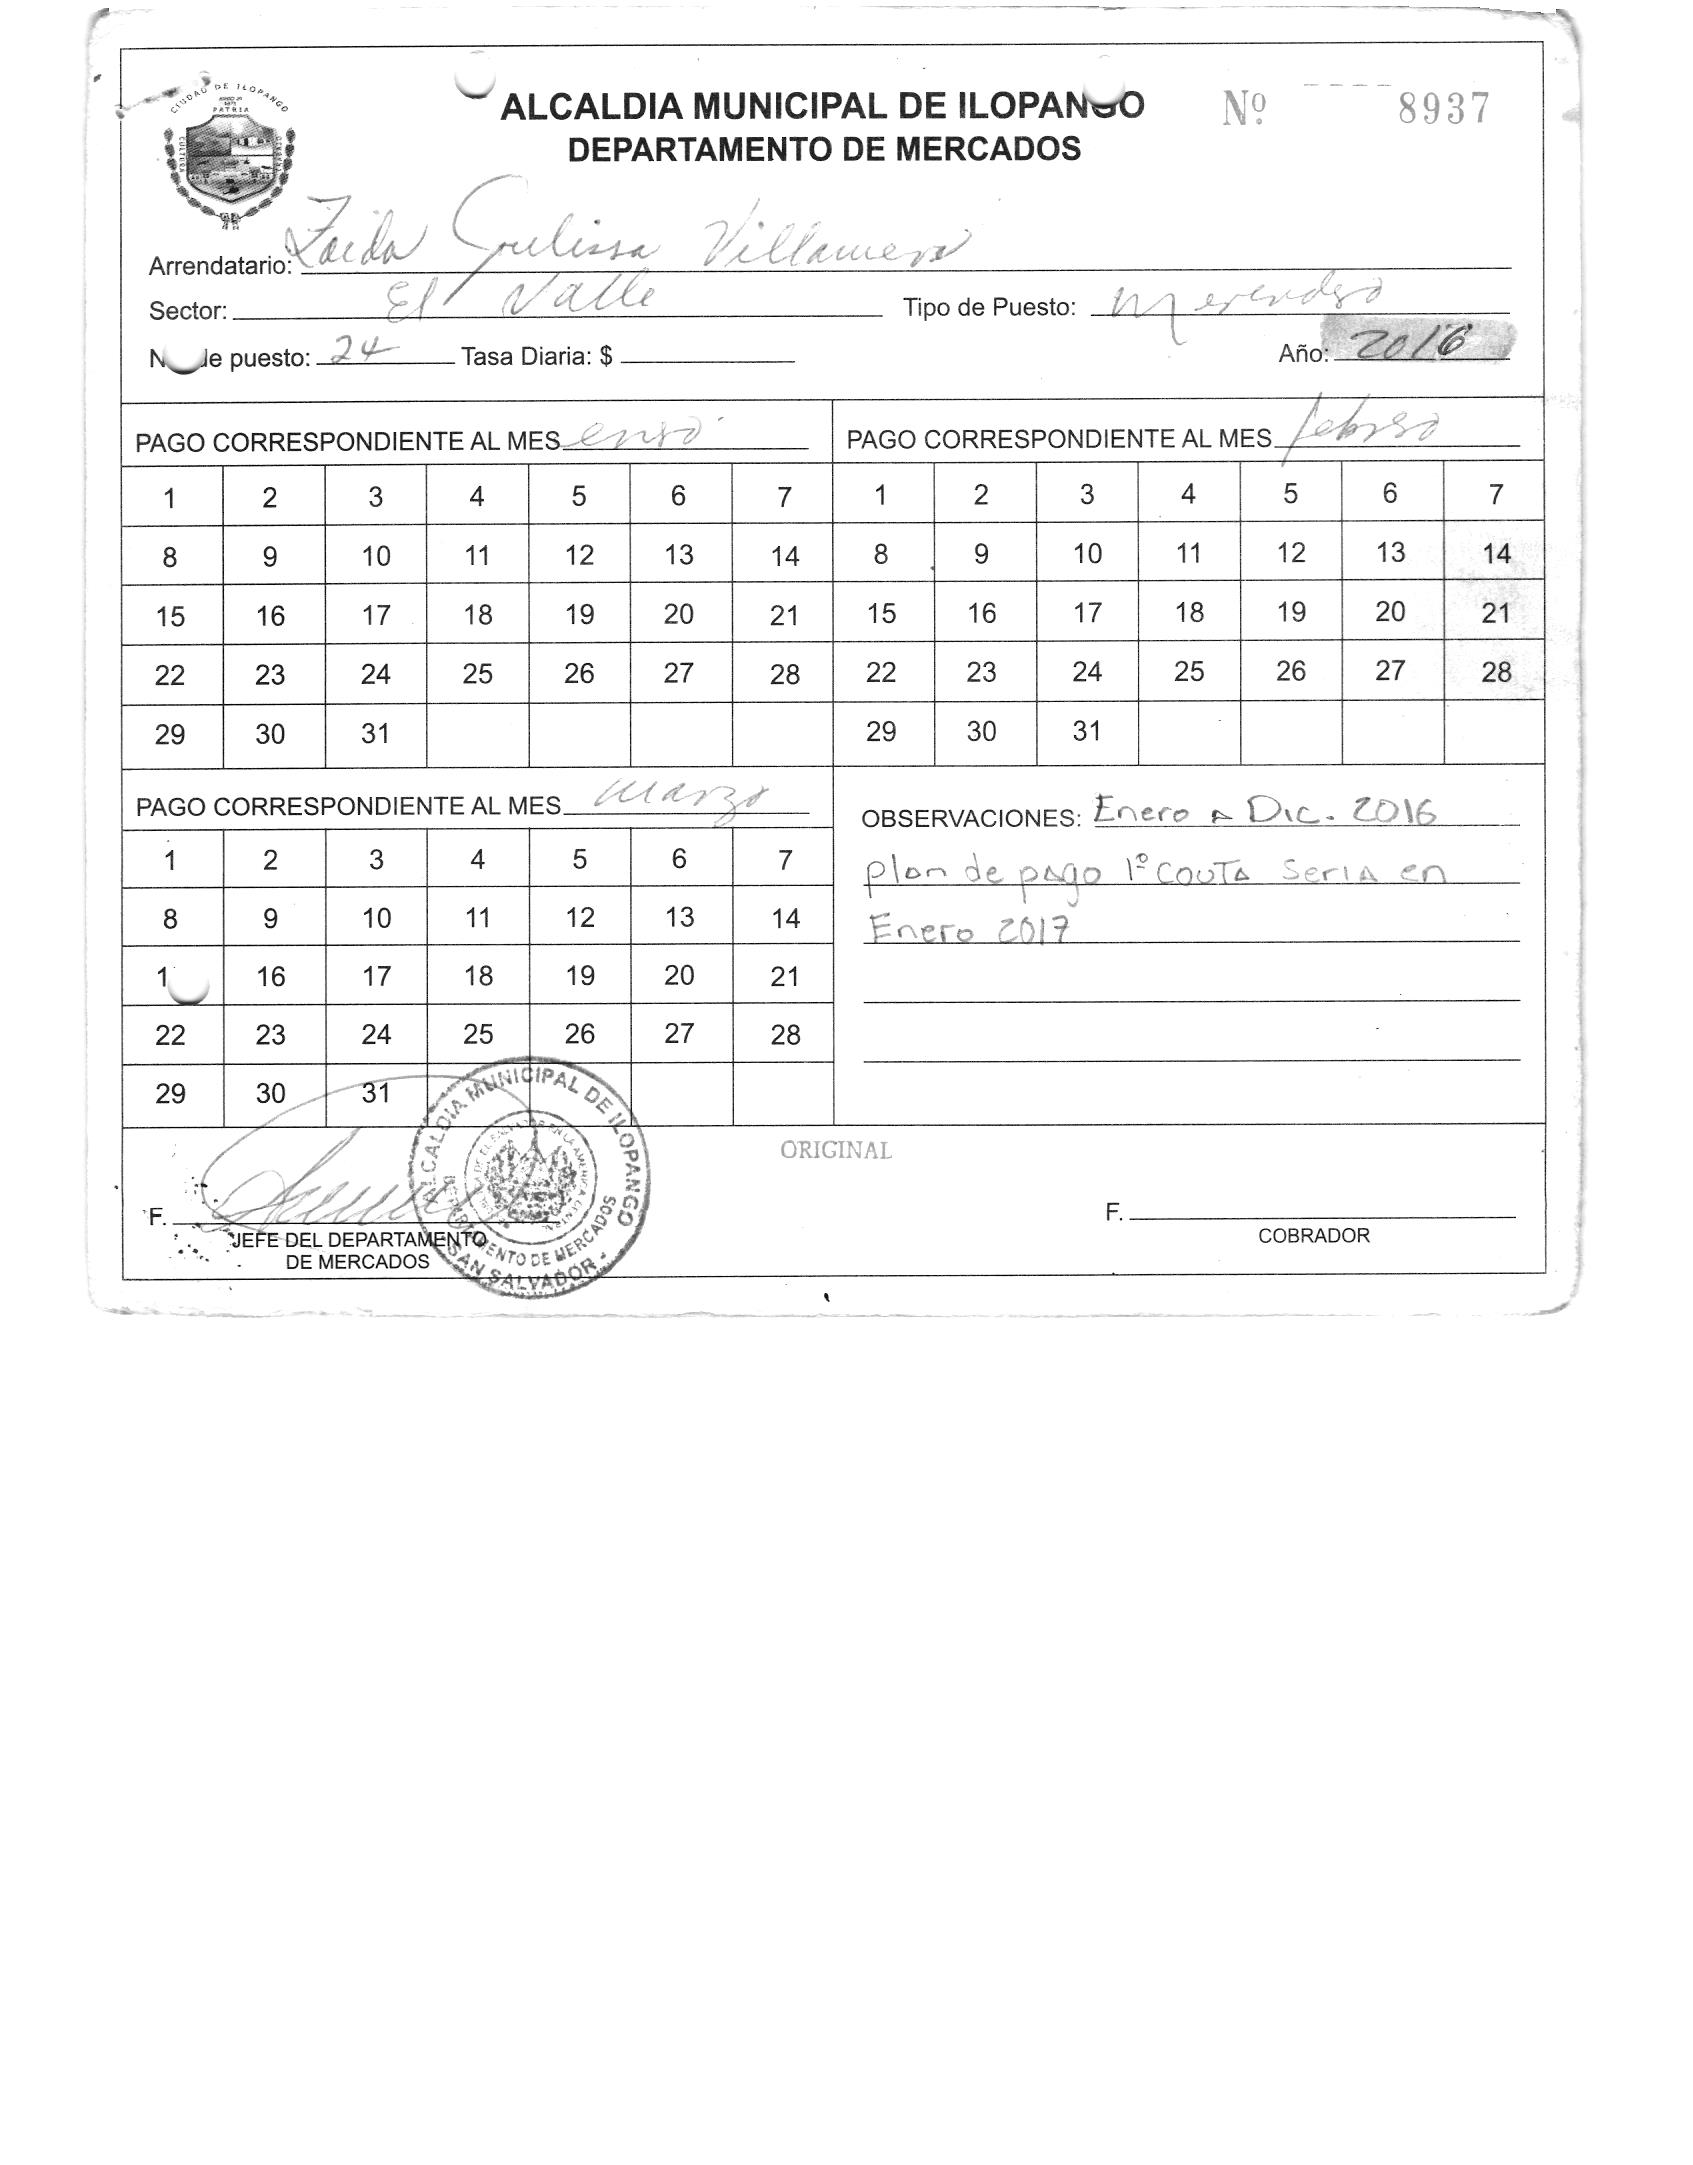 CIUDAD DE ILOPANGO
PATRIA
CULTURA
ALCALDIA MUNICIPAL DE ILOPANGO
DEPARTAMENTO DE MERCADOS
Nº 8937
Arrendatario: Zaida Villamera
Sector: El Valle Tipo de Puesto: Merendero
N de puesto: 24 Tasa Diaria: $ Año: 2016
PAGO CORRESPONDIENTE AL MES enero
1 2 3 4 5 6 7
8 9 10 11 12 13 14
15 16 17 18 19 20 21
22 23 24 25 26 27 28
29 30 31
PAGO CORRESPONDIENTE AL MES febrero
1 2 3 4 5 6 7
8 9 10 11 12 13 14
15 16 17 18 19 20 21
22 23 24 25 26 27 28
29 30 31
PAGO CORRESPONDIENTE AL MES marzo
1 2 3 4 5 6 7
8 9 10 11 12 13 14
1 16 17 18 19 20 21
22 23 24 25 26 27 28
29 30 31
OBSERVACIONES: Enero A Dic. 2016
plan de pago 1º COUTA SERIA en
Enero 2017
ORIGINAL
F.
JEFE DEL DEPARTAMENTO
DE MERCADOS
ALCALDIA MUNICIPAL DE ILOPANGO
DEPARTAMENTO DE MERCADOS
SAN SALVADOR
F.
COBRADOR